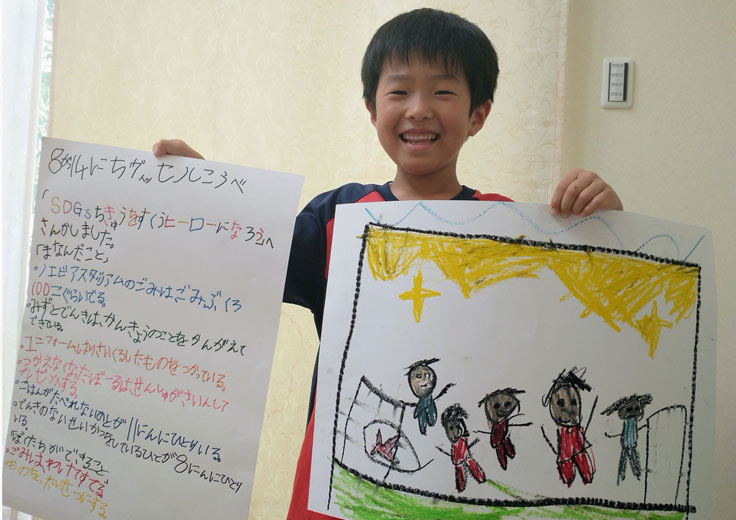 8がつ14にちゲんヴィッセルこうべ
「SDGsちきゅうをすくうヒーローになろう」へ
さんかしました。
「まなんだこと」
・ノエビアスタジアムのごみはごみぶくろ
100こぐらいでる。
・みずとでんきは、かんきょうのことをかんがえて
できている。
・ユニフォームはりさいくるしたものをつかっている。
・つかえなくなったぼーるはせんしゅがさいんして
プレゼントする。
・ごはんがたべれないひとが11にんにひとりいる。
・でんきのないせいかつをしているひとが8にんにひとり
いる。
「ぼくたちができること」
・ごみは、わけてすてる。
ものを、たいせつにする。